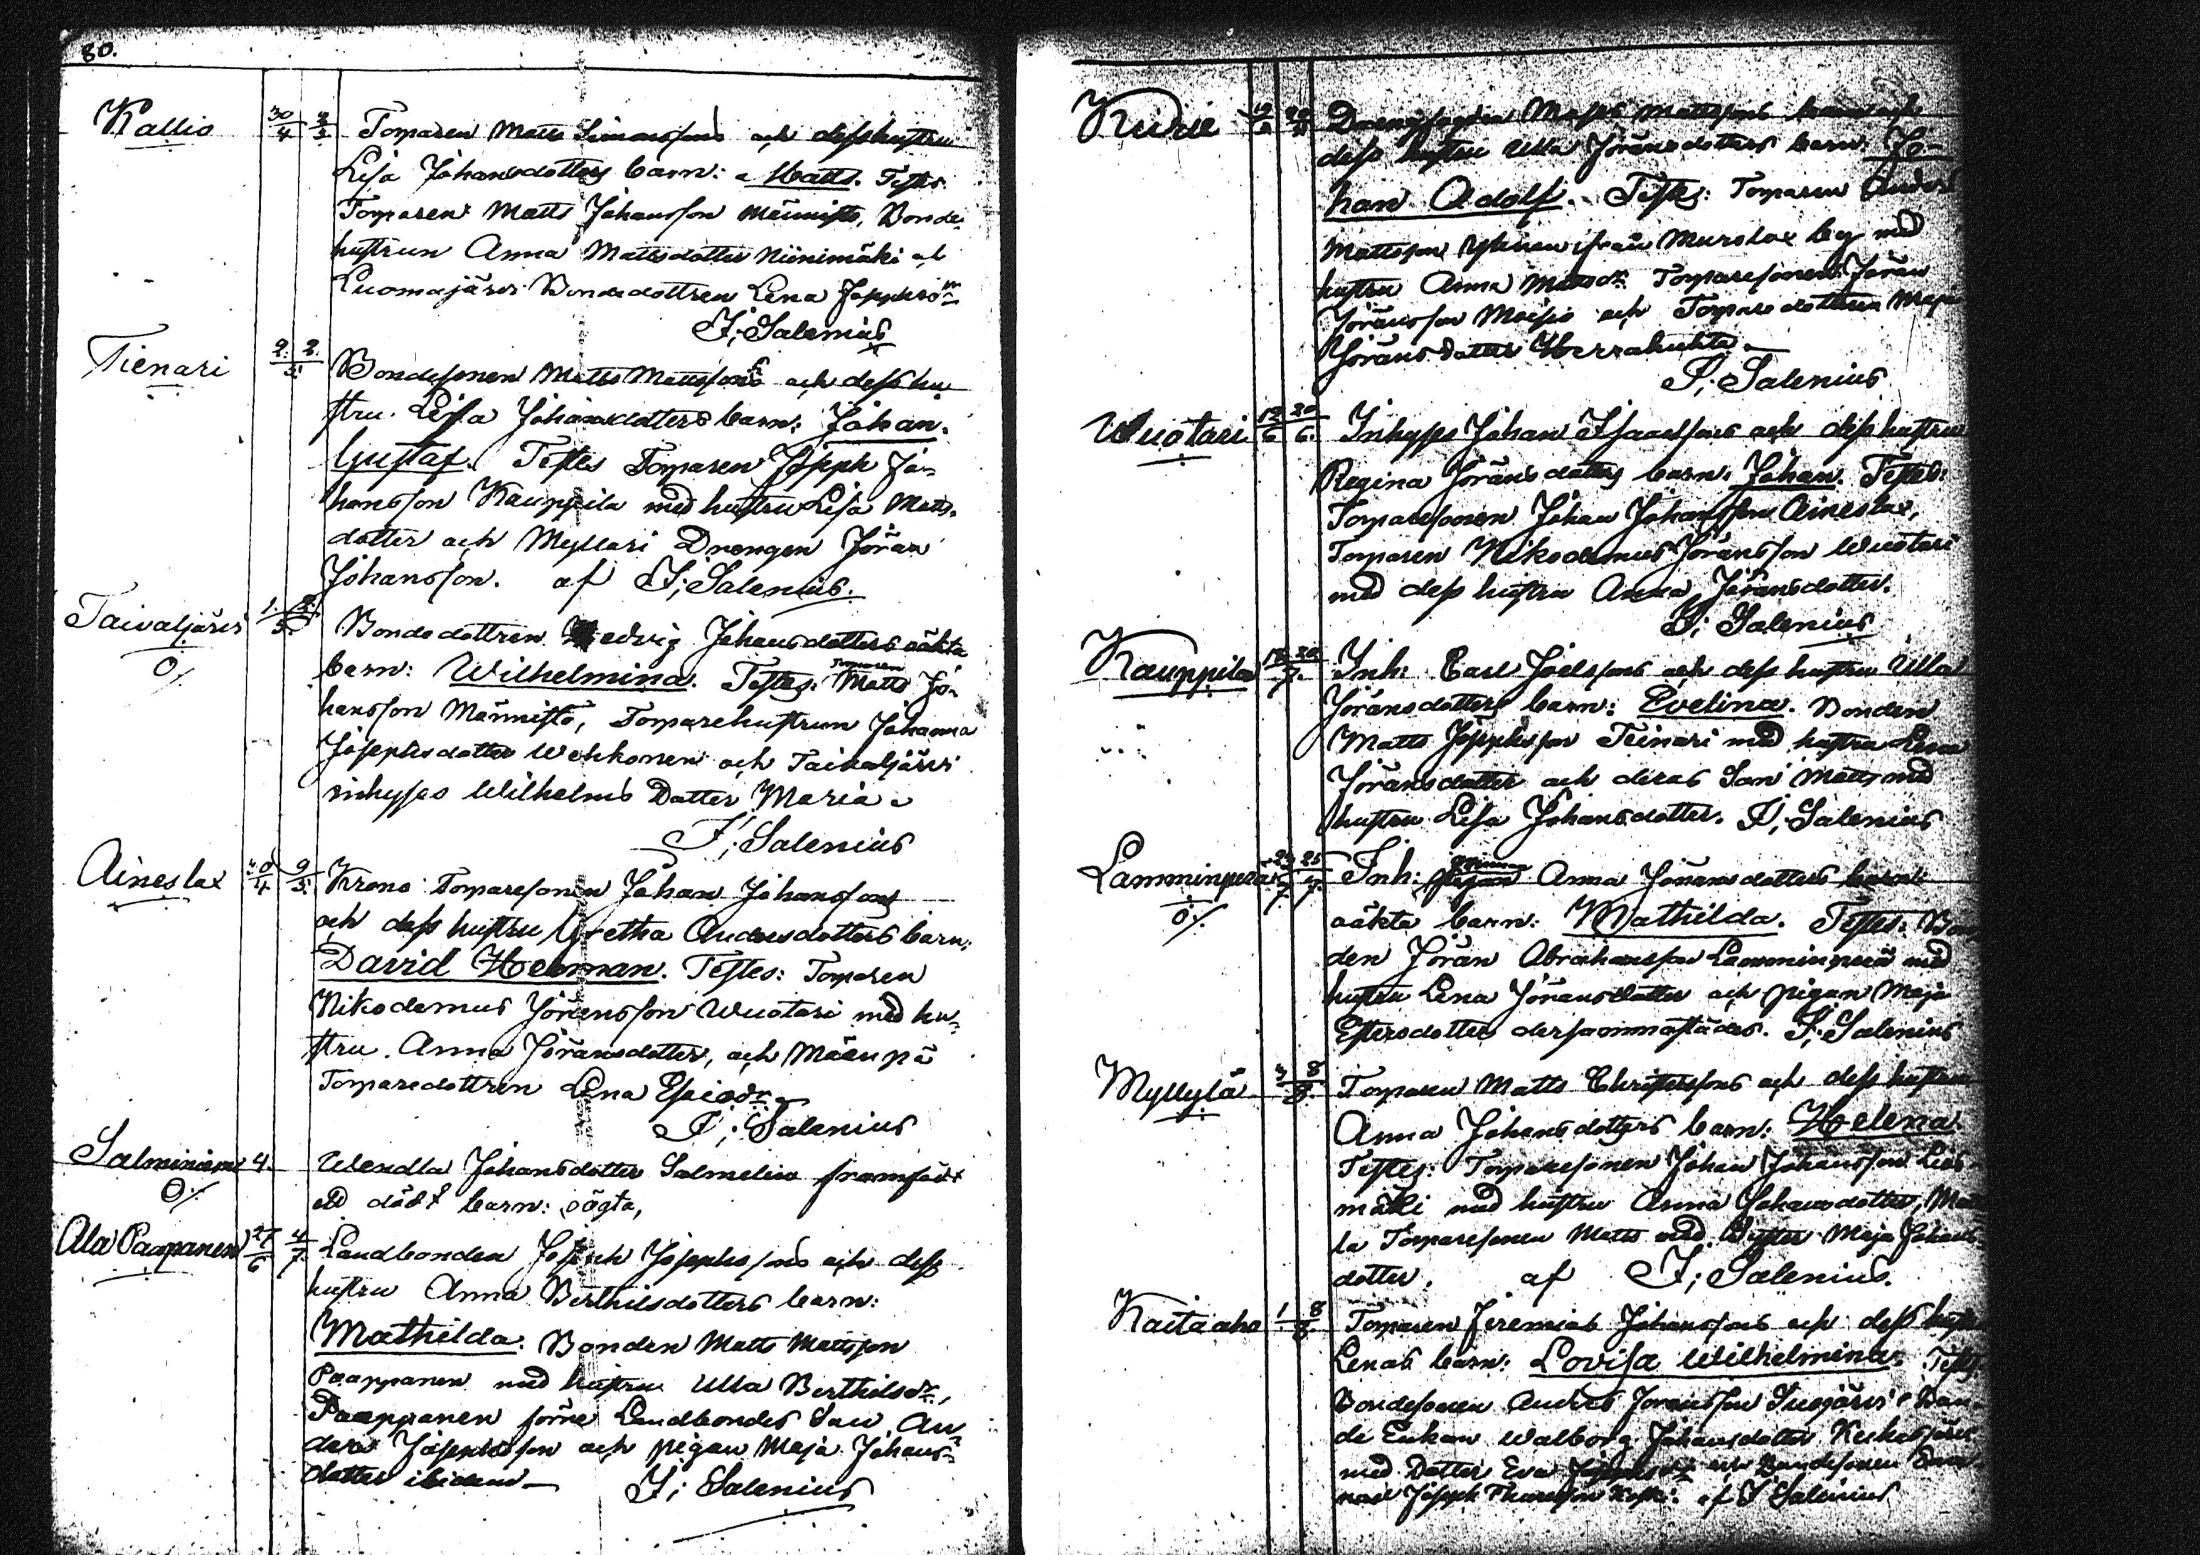 80.
Kallio 30/4 Torparen Matts Simonssons och dess hustru
Lisa Johansdotters barn: Matts. Testes
Torparen Matts Johansson Männistö, Bonde-
hustrun Anna Mattsdotter Niinimäki
Luomajärvi Bondedottren Lena
I; Salenius
Tienari 2. 2./5. Bondesonen Matts Mattssons och dess hu
stru Lisa Johansdotters barn: Johan
Gustaf. Testes Torparen Joseph Jo-
hansson Kauppila med hustru Lisa Matts-
dotter och Myllari Drengen Jöran
Johansson. af I; Salenius.
Taivaljärvi 1./5. Bondedottren Hedvig Johansdotters oäkta
0/. barn: Wilhelmina. Testes: Torparen Matts Jo-
hansson Männistö, Torparehustrun Johanna
Josephsdotter Wehkonen och Taivaljärvi
inhyses Wilhelms Dotter Maria
I; Salenius
Aineslax 30/4 9/5. Krono Torparesonen Johan Johanssons
och dess hustru Gretha Andersdotters barn:
David Herman. Testes: Torparen
Nikodemus Jöransson Wuotari med hu-
stru. Anna Jöransdotter, och Mäenpä
Torparedottren Lena
I; Salenius
4. Wendla Johansdotter Salmelin framfödt
0/. ett dödt barn: oägta,
Ala Paapanen 27/6 4/7. Landbonden Joseph Josephssons och dess
hustru Anna Berthilsdotters barn:
Mathilda. Bonden Matts Mattsson
Paappanen med hustru Ulla Berthilsdr,
Paappanen förre Landbondes Son, An-
ders Josephsson och pigan Maja Johans-
dotter ibidem
I; Salenius
Kurie Mattssons barn och
dess hustru Ulla Jöransdotters barn: Jo-
han Adolf. Testes: Torparen Anders
Mattsson från Murolax by med
hustru Anna Mattsdr Torparesonen Jöran
Jöransson Moisio och Torparedottren Maja
Jöransdotter Herrakuhta
I; Salenius
Wuotari 19/6 20/6. Inhyses Johan Isaacssons och dess hustru
Regina Jöransdotters barn: Johan. Testes:
Torparesonen Johan Johansson Aineslax,
Torparen Nikodemus Jöransson Wuotari
med dess hustru Anna Jöransdotter.
I; Salenius
Kauppila 18/7 20/7. Inh: Carl Joelssons och dess hustru Ulla
Jöransdotters barn: Evelina. Bonden
Matts Josephsson Teinari med hustru Lena
Jöransdotter och deras Son Matts med
hustru Lisa Johansdotter. I; Salenius
Lamminperä 25/7. Inh: Anna Jöransdotters barn:
0/. oäkta barn: Mathilda. Testes: Bon
den Jöran Abrahamsson Lamminperä med
hustru Lena Jöransdotter och pigan Maja
Estersdotter dersammastädes. I; Salenius
Myllylä 8/8. Torparen Matts Christerssons och dess hustru
Anna Johansdotters barn: Helena.
Testes: Torparesonen Johan Johansson
mäki med hustru Anna Johansdotter,
la Torparesonen Matts med Syster Maja Johans-
dotter. af I; Salenius.
Kaitaaho 1 8/8. Torparen Jeremias Johanssons och dess hustru
Lenas barn: Lovisa Wilhelmina: Testes
Bondesonen Anders Jöransson Suojärvi Bon-
de Enkan Walborg Johansdotter Keskisjärvi
med Dotter Eva och Bondesonen
Joseph af I Salenius